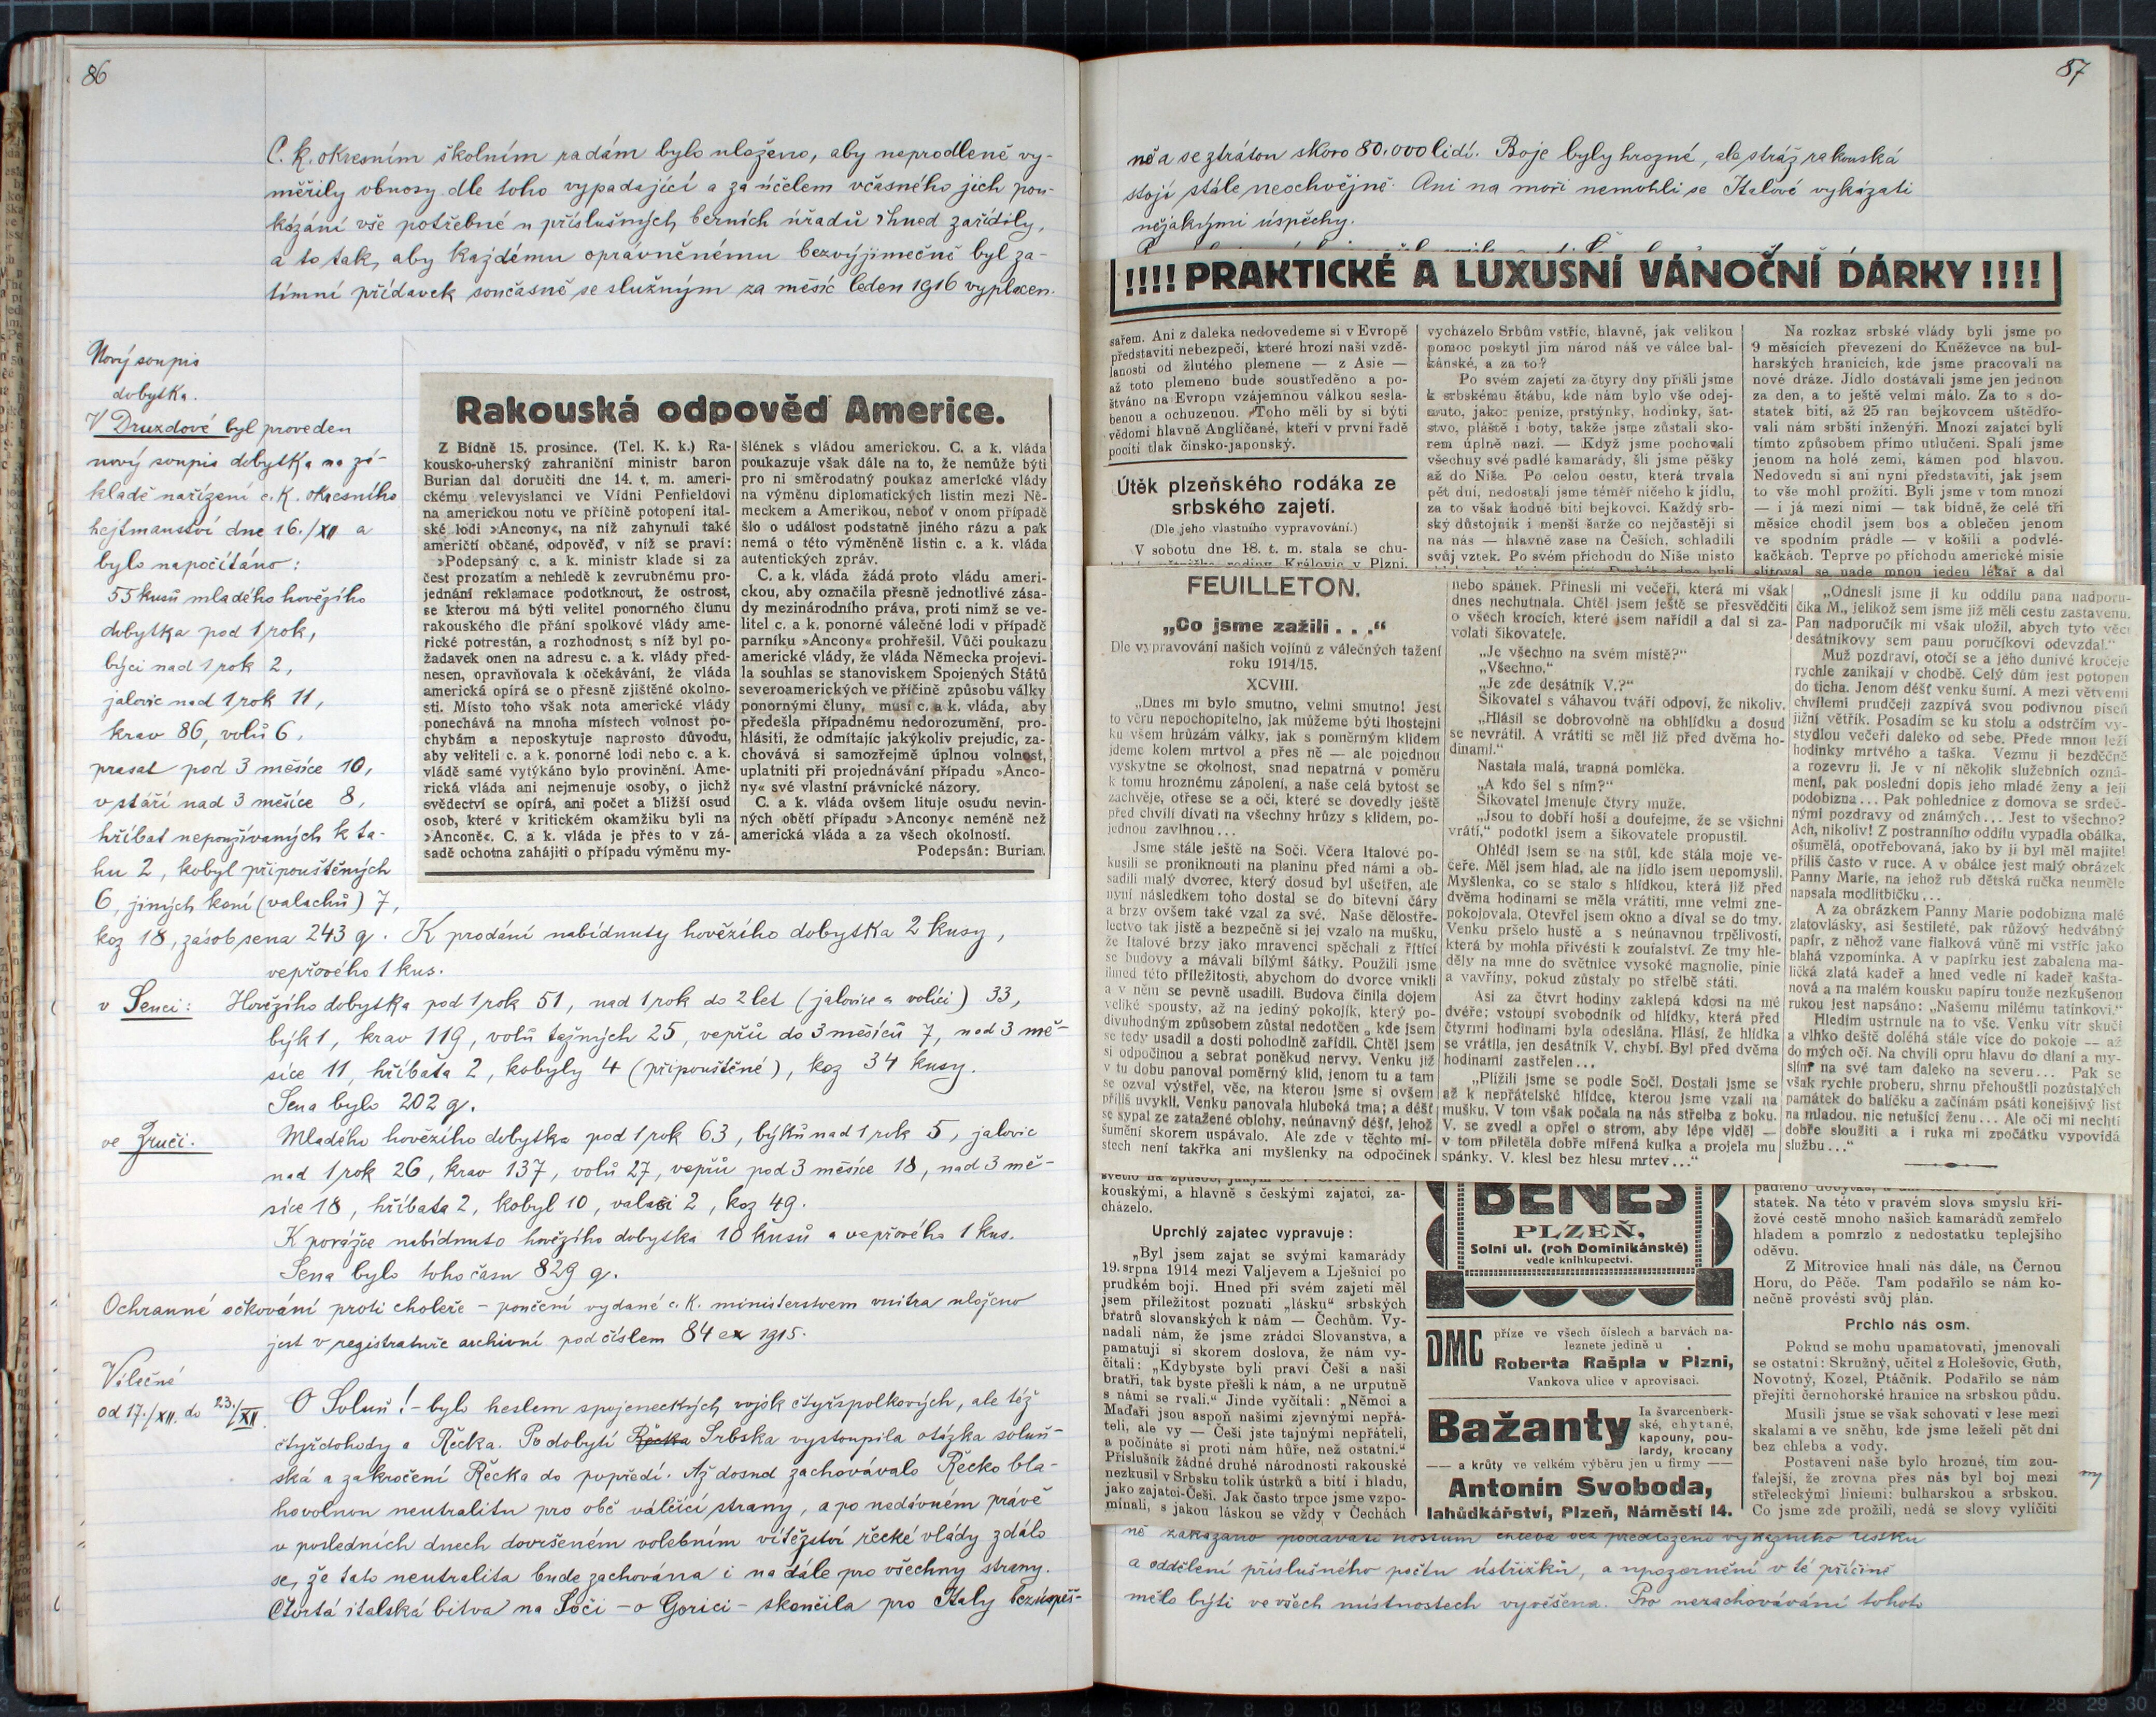 86
C. k. okresním školním radám bylo uloženo, aby neprodleně vy-
měřily obnosy dle toho vypadající a za účelem včasného jich pou-
kázání vše potřebné u příslušných berních úřadů ihned zařídily,
a to tak, aby každému oprávněnému bezvýjimečně byl za-
tímní přídavek současně se služným za měsíc leden 1916 vyplacen.
Nový soupis
dobytka.
V Druzdové byl proveden
nový soupis dobytka na zá-
kladě nařízení c. k. okresního
hejtmanství dne 16./XII a
bylo napočítáno:
55 kusů mladého hovězího
dobytka pod 1 rok,
býci nad 1 rok 2,
jalovic nad 1 rok 11,
krav 86, volů 6,
prasat pod 3 měsíce 10,
v stáří nad 3 měsíce 8,
hříbat nepoužívaných k ta-
hu 2, kobyl připouštěných
6, jiných koní (valachů) 7,
koz 18, zásob sena 243 q. K prodání nabídnuty hovězího dobytka 2 kusy,
vepřového 1 kus.
v Senci: Hovězího dobytka pod 1 rok 51, nad 1 rok do 2 let (jalovice a volíci) 33,
býk 1, krav 119, volů tažných 25, vepřů do 3 měsíců 7, nad 3 mě-
síce 11, hříbata 2, kobyly 4 (připouštěné), koz 34 kusy.
Sena bylo 202 q.
ve Zruči. Mladého hovězího dobytka pod 1 rok 63, býků nad 1 rok 5, jalovic
nad 1 rok 26, krav 137, volů 27, vepřů pod 3 měsíce 18, nad 3 mě-
síce 18, hříbata 2, kobyl 10, valaši 2, koz 49.
K porážce nabídnuto hovězího dobytka 10 kusů a vepřového 1 kus.
Sena bylo toho času 829 q.
Ochranné očkování proti choleře – poučení vydané c. k. ministerstvem vnitra uloženo
jest v registratuře archivní pod číslem 84 ex 1915.
Válečné
od 17./XII. do 23./XII. O Soluň! – bylo heslem spojeneckých vojsk čtyřspolkových, ale též
čtyřdohody a Řecka. Po dobytí Řecka Srbska vystoupila otázka soluň-
ská a zakročení Řecka do popředí. Až dosud zachovávalo Řecko bla-
hovolnou neutralitu pro obě válčící strany, a po nedávném právě
v posledních dnech dovršeném volebním vítězství řecké vlády zdálo
se, že tato neutralita bude zachována i na dále pro všechny strany.
Čtvrtá italská bitva na Soči – o Gorici – skončila pro Italy bezúspěš-
Rakouská odpověď Americe.
Z Bídně 15. prosince. (Tel. K. k.) Ra-
kousko-uherský zahraniční ministr baron
Burian dal doručiti dne 14. t. m. ameri-
ckému velevyslanci ve Vídni Penfieldovi
na americkou notu ve příčině potopení ital-
ské lodi »Ancony«, na níž zahynuli také
američtí občané, odpověď, v níž se praví:
»Podepsaný c. a k. ministr klade si za
čest prozatím a nehledě k zevrubnému pro-
jednání reklamace podotknout, že ostrost,
se kterou má býti velitel ponorného člunu
rakouského dle přání spolkové vlády ame-
rické potrestán, a rozhodnost, s níž byl po-
žadavek onen na adresu c. a k. vlády před-
nesen, opravňovala k očekávání, že vláda
americká opírá se o přesně zjištěné okolno-
sti. Místo toho však nota americké vlády
ponechává na mnoha místech volnost po-
chybám a neposkytuje naprosto důvodu,
aby veliteli c. a k. ponorné lodi nebo c. a k.
vládě samé vytýkáno bylo provinění. Ame-
rická vláda ani nejmenuje osoby, o jichž
svědectví se opírá, ani počet a bližší osud
osob, které v kritickém okamžiku byli na
»Anconě«. C. a k. vláda je přes to v zá-
sadě ochotna zahájiti o případu výměnu my-
šlének s vládou americkou. C. a k. vláda
poukazuje však dále na to, že nemůže býti
pro ni směrodatný poukaz americké vlády
na výměnu diplomatických listin mezi Ně-
meckem a Amerikou, neboť v onom případě
šlo o událost podstatně jiného rázu a pak
nemá o této výměněně listin c. a k. vláda
autentických zpráv.
C. a k. vláda žádá proto vládu ameri-
ckou, aby označila přesně jednotlivé zása-
dy mezinárodního práva, proti nimž se ve-
litel c. a k. ponorné válečné lodi v případě
parníku »Ancony« prohřešil. Vůči poukazu
americké vlády, že vláda Německa projevi-
la souhlas se stanoviskem Spojených Států
severoamerických ve příčině způsobu války
ponornými čluny, musí c. a k. vláda, aby
předešla případnému nedorozumění, pro-
hlásiti, že odmítajíc jakýkoliv prejudic, za-
chovává si samozřejmě úplnou volnost,
uplatniti při projednávání případu »Anco-
ny« své vlastní právnické názory.
C. a k. vláda ovšem lituje osudu nevin-
ných obětí případu »Ancony« neméně než
americká vláda a za všech okolností.
Podepsán: Burian.
87
ně a se ztrátou skoro 80.000 lidí. Boje byly hrozné, ale stráž rakouská
stojí stále neochvějně. Ani na moři nemohli se Italové vykázati
nějakými úspěchy.
!!!! PRAKTICKÉ A LUXUSNÍ VÁNOČNÍ DÁRKY !!!!
sařem. Ani z daleka nedovedeme si v Evropě
představiti nebezpečí, které hrozí naší vzdě-
lanosti od žlutého plemene — z Asie —
až toto plemeno bude soustředěno a po-
štváno na Evropu vzájemnou válkou sesla-
benou a ochuzenou. Toho měli by si býti
vědomi hlavně Angličané, kteří v první řadě
pocítí tlak čínsko-japonský.
Útěk plzeňského rodáka ze
srbského zajetí.
(Dle jeho vlastního vypravování.)
V sobotu dne 18. t. m. stala se chu-
vycházelo Srbům vstříc, hlavně, jak velikou
pomoc poskytl jim národ náš ve válce bal-
kánské, a za to?
Po svém zajetí za čtyry dny přišli jsme
k srbskému štábu, kde nám bylo vše odej-
muto, jako: peníze, prstýnky, hodinky, šat-
stvo, pláště i boty, takže jsme zůstali sko-
rem úplně nazí. — Když jsme pochovali
všechny své padlé kamarády, šli jsme pěšky
až do Niše. Po celou cestu, která trvala
pět dní, nedostali jsme téměř ničeho k jídlu,
za to však hodně bití bejkovci. Každý srb-
ský důstojník i menší šarže co nejčastěji si
na nás — hlavně zase na Češích, schladili
svůj vztek. Po svém příchodu do Niše místo
Na rozkaz srbské vlády byli jsme po
9 měsících převezeni do Kněževce na bul-
harských hranicích, kde jsme pracovali na
nové dráze. Jídlo dostávali jsme jen jednou
za den, a to ještě velmi málo. Za to s do-
statek bití, až 25 ran bejkovcem uštědřo-
vali nám srbští inženýři. Mnozí zajatci byli
tímto způsobem přímo utlučeni. Spali jsme
jenom na holé zemi, kámen pod hlavou.
Nedovedu si ani nyní představiti, jak jsem
to vše mohl prožíti. Byli jsme v tom mnozí
— i já mezi nimi — tak bídně, že celé tři
měsíce chodil jsem bos a oblečen jenom
ve spodním prádle — v košili a podvlé-
kačkách. Teprve po příchodu americké misie
slitoval se nade mnou jeden lékař a dal
FEUILLETON.
„Co jsme zažili . . .“
Dle vypravování našich vojínů z válečných tažení
roku 1914/15.
XCVIII.
„Dnes mi bylo smutno, velmi smutno! Jest
to věru nepochopitelno, jak můžeme býti lhostejni
ku všem hrůzám války, jak s poměrným klidem
jdeme kolem mrtvol a přes ně — ale pojednou
vyskytne se okolnost, snad nepatrná v poměru
k tomu hroznému zápolení, a naše celá bytost se
zachvěje, otřese se a oči, které se dovedly ještě
před chvílí dívati na všechny hrůzy s klidem, po-
jednou zavlhnou...
Jsme stále ještě na Soči. Včera Italové po-
kusili se proniknouti na planinu před námi a ob-
sadili malý dvorec, který dosud byl ušetřen, ale
nyní následkem toho dostal se do bitevní čáry
a brzy ovšem také vzal za své. Naše dělostře-
lectvo tak jistě a bezpečně si jej vzalo na mušku,
že Italové brzy jako mravenci spěchali z řítící
se budovy a mávali bílými šátky. Použili jsme
ihned této příležitosti, abychom do dvorce vnikli
a v něm se pevně usadili. Budova činila dojem
veliké spousty, až na jediný pokojík, který po-
divuhodným způsobem zůstal nedotčen, kde jsem
se tedy usadil a dosti pohodlně zařídil. Chtěl jsem
si odpočinou a sebrat poněkud nervy. Venku již
v tu dobu panoval poměrný klid, jenom tu a tam
se ozval výstřel, věc, na kterou jsme si ovšem
příliš uvykli. Venku panovala hluboká tma; a déšť
se sypal ze zatažené oblohy, neúnavný déšť, jehož
šumění skorem uspávalo. Ale zde v těchto mí-
stech není takřka ani myšlenky na odpočinek
nebo spánek. Přinesli mi večeři, která mi však
dnes nechutnala. Chtěl jsem ještě se přesvědčiti
o všech krocích, které jsem nařídil a dal si za-
volati šikovatele.
„Je všechno na svém místě?“
„Všechno.“
„Je zde desátník V.?“
Šikovatel s váhavou tváří odpoví, že nikoliv.
„Hlásil se dobrovolně na obhlídku a dosud
se nevrátil. A vrátiti se měl již před dvěma ho-
dinami.“
Nastala malá, trapná pomlčka.
„A kdo šel s ním?“
Šikovatel jmenuje čtyry muže.
„Jsou to dobří hoši a doufejme, že se všichni
vrátí,“ podotkl jsem a šikovatele propustil.
Ohlédl jsem se na stůl, kde stála moje ve-
čeře. Měl jsem hlad, ale na jídlo jsem nepomyslil.
Myšlenka, co se stalo s hlídkou, která již před
dvěma hodinami se měla vrátiti, mne velmi zne-
pokojovala. Otevřel jsem okno a díval se do tmy.
Venku pršelo hustě a s neúnavnou trpělivostí,
která by mohla přivésti k zoufalství. Ze tmy hle-
děly na mne do světnice vysoké magnolie, pinie
a vavříny, pokud zůstaly po střelbě státi.
Asi za čtvrt hodiny zaklepá kdosi na mé
dvéře; vstoupí svobodník od hlídky, která před
čtyrmi hodinami byla odeslána. Hlásí, že hlídka
se vrátila, jen desátník V. chybí. Byl před dvěma
hodinami zastřelen...
„Plížili jsme se podle Soči. Dostali jsme se
až k nepřátelské hlídce, kterou jsme vzali na
mušku. V tom však počala na nás střelba z boku.
V. se zvedl a opřel o strom, aby lépe viděl —
v tom přiletěla dobře mířená kulka a projela mu
spánky. V. klesl bez hlesu mrtev...“
„Odnesli jsme ji ku oddílu pana nadporu-
číka M., jelikož sem jsme již měli cestu zastavenu.
Pan nadporučík mi však uložil, abych tyto věci
desátníkovy sem panu poručíkovi odevzdal.“
Muž pozdraví, otočí se a jeho dunivé kročeje
rychle zanikají v chodbě. Celý dům jest potopen
do ticha. Jenom déšť venku šumí. A mezi větvemi
chvílemi prudčeji zazpívá svou podivnou píseň
jižní větřík. Posadím se ku stolu a odstrčím vy-
stydlou večeři daleko od sebe. Přede mnou leží
hodinky mrtvého a taška. Vezmu ji bezděčně
a rozevru ji. Je v ní několik služebních ozná-
mení, pak poslední dopis jeho mladé ženy a její
podobizna... Pak pohlednice z domova se srdeč-
nými pozdravy od známých... Jest to všechno?
Ach, nikoliv! Z postranního oddílu vypadla obálka,
ošumělá, opotřebovaná, jako by ji byl měl majitel
příliš často v ruce. A v obálce jest malý obrázek
Panny Marie, na jehož rub dětská ručka neuměle
napsala modlitbičku...
A za obrázkem Panny Marie podobizna malé
zlatovlásky, asi šestileté, pak růžový hedvábný
papír, z něhož vane fialková vůně mi vstříc jako
blahá vzpomínka. A v papírku jest zabalena ma-
ličká zlatá kadeř a hned vedle ní kadeř kašta-
nová a na malém kousku papíru touže nezkušenou
rukou jest napsáno: „Našemu milému tatínkovi.“
Hledím ustrnule na to vše. Venku vítr skučí
a vlhko deště doléhá stále více do pokoje — až
do mých očí. Na chvíli opru hlavu do dlaní a my-
slím na své tam daleko na severu... Pak se
však rychle proberu, shrnu přehoušlí pozůstalých
památek do balíčku a začínám psáti konejšivý list
na mladou, nic netušící ženu... Ale oči mi nechtí
dobře sloužiti a i ruka mi zpočátku vypovídá
službu...“
kouskými, a hlavně s českými zajatci, za-
cházelo.
Uprchlý zajatec vypravuje:
„Byl jsem zajat se svými kamarády
19. srpna 1914 mezi Valjevem a Lješnicí po
prudkém boji. Hned při svém zajetí měl
jsem příležitost poznati „lásku“ srbských
bratrů slovanských k nám — Čechům. Vy-
nadali nám, že jsme zrádci Slovanstva, a
pamatuji si skorem doslova, že nám vy-
čítali: „Kdybyste byli praví Češi a naši
bratři, tak byste přešli k nám, a ne urputně
s námi se rvali.“ Jinde vyčítali: „Němci a
Maďaři jsou aspoň našimi zjevnými nepřá-
teli, ale vy — Češi jste tajnými nepřáteli,
a počínáte si proti nám hůře, než ostatní.“
Příslušník žádné druhé národnosti rakouské
nezkusil v Srbsku tolik ústrků a bití i hladu,
jako zajatci-Češi. Jak často trpce jsme vzpo-
mínali, s jakou láskou se vždy v Čechách
BENEŠ
PLZEŇ,
Solní ul. (roh Dominikánské)
vedle knihkupectví.
DMC příze ve všech číslech a barvách na-
leznete jedině u
Roberta Rašpla v Plzni,
Vankova ulice v aprovisaci.
Bažanty Ia švarcenberk-
ské, chytané,
kapouny, pou-
lardy, krocany
— a krůty ve velkém výběru jen u firmy —
Antonín Svoboda,
lahůdkářství, Plzeň, Náměstí 14.
statek. Na této v pravém slova smyslu kří-
žové cestě mnoho našich kamarádů zemřelo
hladem a pomrzlo z nedostatku teplejšího
oděvu.
Z Mitrovice hnali nás dále, na Černou
Horu, do Péče. Tam podařilo se nám ko-
nečně provésti svůj plán.
Prchlo nás osm.
Pokud se mohu upamatovati, jmenovali
se ostatní: Skružný, učitel z Holešovic, Guth,
Novotný, Kozel, Ptáčník. Podařilo se nám
přejíti černohorské hranice na srbskou půdu.
Musili jsme se však schovati v lese mezi
skalami a ve sněhu, kde jsme leželi pět dní
bez chleba a vody.
Postavení naše bylo hrozné, tím zou-
falejší, že zrovna přes nás byl boj mezi
střeleckými liniemi: bulharskou a srbskou.
Co jsme zde prožili, nedá se slovy vylíčiti
ně zakázáno podávati hostům chleba bez předložení výkazního lístku
a oddělení příslušného počtu ústřižků, a upozornění v té příčině
mělo býti ve všech místnostech vyvěšena. Pro nezachovávání tohoto